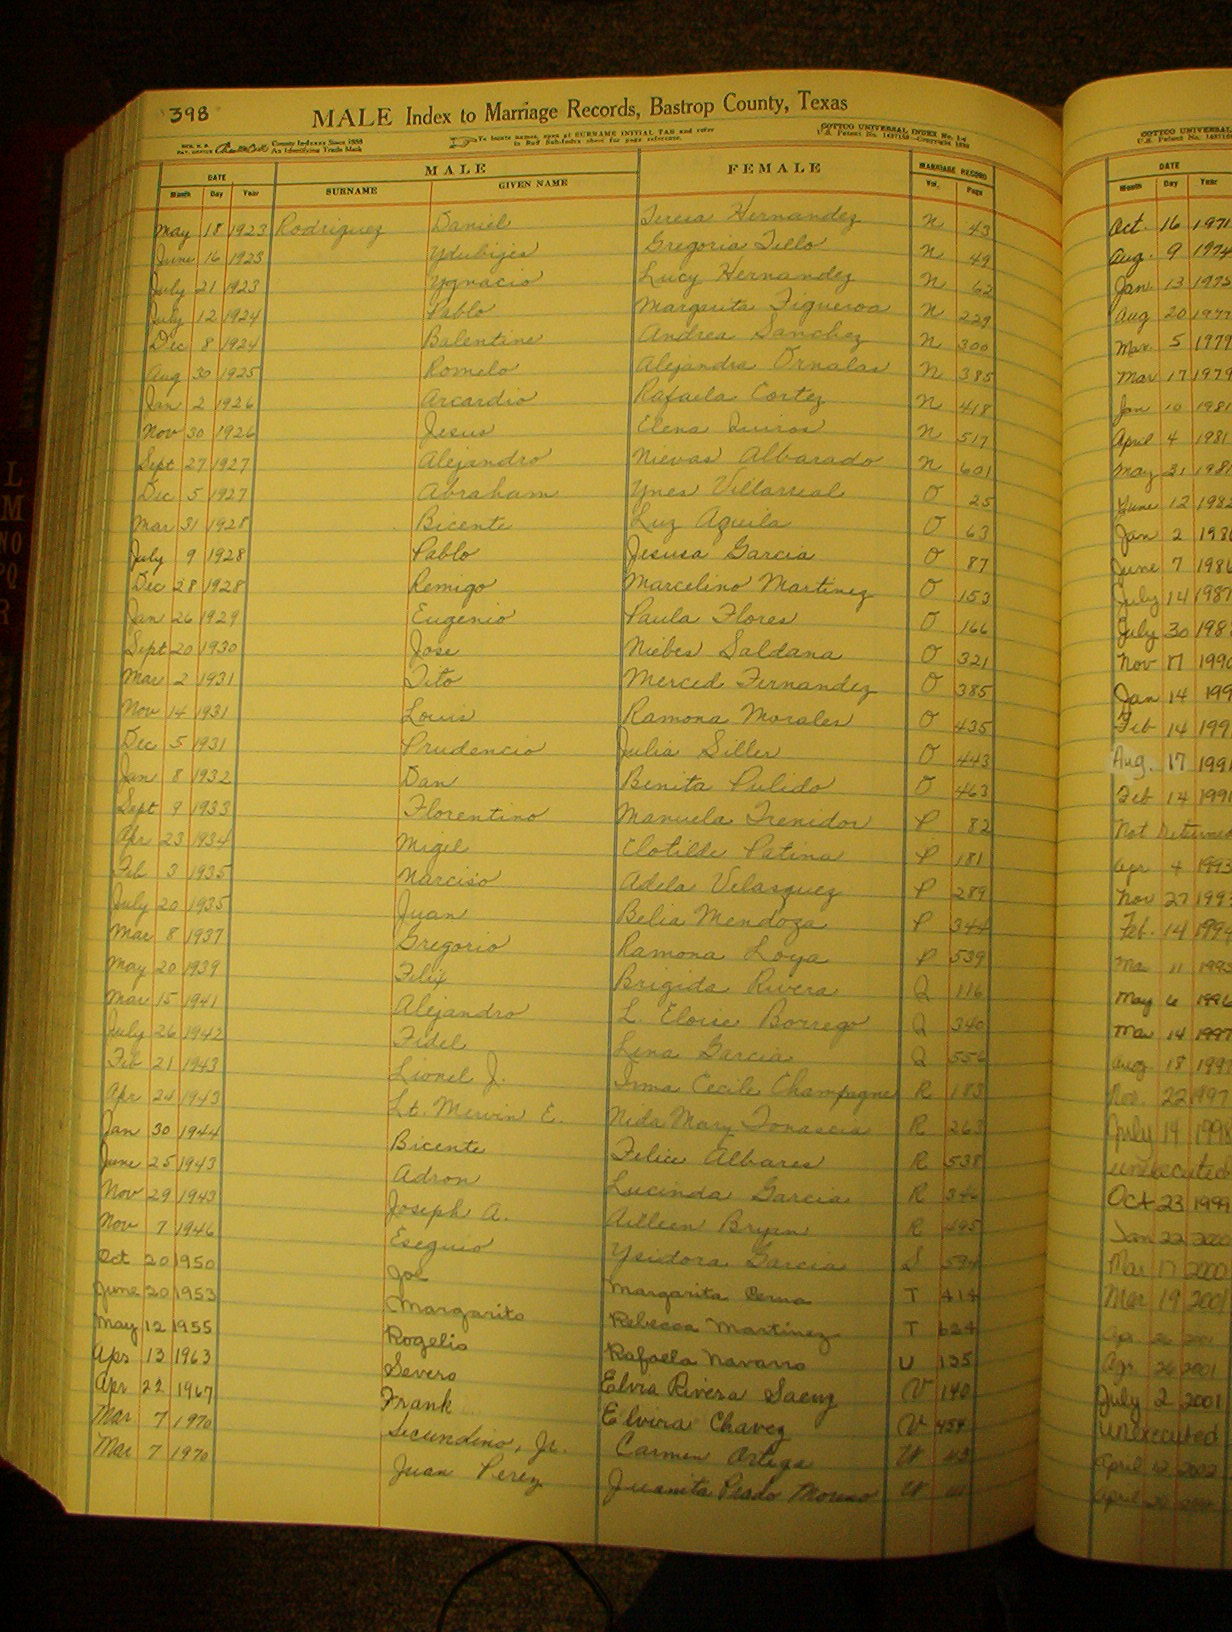 398
MALE Index to Marriage Records, Bastrop County, Texas
County Indexes Since 1888
An Identifying Trade Mark
To locate names, open at SURNAME INITIAL TAB and refer
to Red Sub-Index sheet for page reference.
COTTCO UNIVERSAL INDEX
U. S. Patent No. 1427153
DATE MALE FEMALE MARRIAGE RECORD
Month Day Year SURNAME GIVEN NAME Vol. Page
May 18 1923 Rodriguez Daniel Teresa Hernandez N 43
June 16 1923 Ydubijes Gregoria Tello N 49
July 21 1923 Ygnacio Lucy Hernandez N 62
July 12 1924 Pablo Margarita Figueroa N 229
Dec 8 1924 Balentine Andrea Sanchez N 300
Aug 30 1925 Romelo Alejandra Ornalas N 385
Jan 2 1926 Arcardio Rafaela Cortez N 418
Nov 30 1926 Jesus Elena Quiros N 517
Sept 27 1927 Alejandro Nievas Albarado N 601
Dec 5 1927 Abraham Ynes Villareal O 25
Mar 31 1928 Bicente Luz Aguila O 63
July 9 1928 Pablo Jesusa Garcia O 87
Dec 28 1928 Remigo Marcelino Martinez O 153
Jan 26 1929 Eugenio Paula Flores O 166
Sept 20 1930 Jose Niebes Saldana O 321
Mar 2 1931 Tito Merced Fernandez O 385
Nov 14 1931 Louis Ramona Morales O 435
Dec 5 1931 Prudencio Julia Siller O 443
Jan 8 1932 Dan Benita Pulido O 463
Sept 9 1933 Florentino Manuela Trenidor P 82
Apr 23 1934 Migel Clotilde Patina P 181
Feb 3 1935 Narciso Adela Velasquez P 289
July 20 1935 Juan Belia Mendoza P 344
Mar 8 1937 Gregorio Ramona Loya P 539
May 20 1939 Felix Brigida Rivera Q 116
Mar 15 1941 Alejandro L. Eloise Borrego Q 340
July 26 1942 Fidel Lena Garcia Q 556
Feb 21 1943 Lionel J. Irma Cecile Champagne R 183
Apr 24 1943 Lt. Mervin E. Nida Mary Tonascia R 263
Jan 30 1944 Bicente Felice Albares R 538
June 25 1943 Adron Lucinda Garcia R 346
Nov 29 1943 Joseph A. Ailleen Bryan R 495
Nov 7 1946 Esequio Ysidora Garcia S
Oct 20 1950 Joe Margarita Serna T 414
June 20 1953 Margarito Rebecca Martinez T 624
May 12 1955 Rogelio Rafaela Navarro U 135
Apr 13 1963 Severo Elvia Rivera Saenz V 140
Apr 22 1967 Frank Elvira Chavez V 454
Mar 7 1970 Secundino, Jr. Carmen Ortega W
Mar 7 1970 Juan Perez Juanita Prado Moreno W
COTTCO UNIVERSAL
U. S. Patent No. 1427153
DATE
Month Day Year
Oct. 16 1971
Aug. 9 1974
Jan 13 1975
Aug 20 1977
Mar. 5 1979
Mar 17 1979
Jan 10 1981
April 4 1981
May 31 1981
June 12 1982
Jan 2
June 7 1986
July 14 1987
July 30 198
Nov 17 1990
Jan 14 199
Feb 14 199
Aug. 17 1991
Feb 14 199
Not Returned
Apr 4 1993
Nov 27 199
Feb. 14 1994
Mar 11 1995
May 6 1996
Mar 14 1997
Aug 18 1997
Nov. 22 1997
July 14 1998
unexecuted
Oct 23 1999
Jan 22 2000
Mar 17 2000
Mar 19 2001
Apr 26 2001
July 2 2001
unexecuted
April 12 2002
April 20